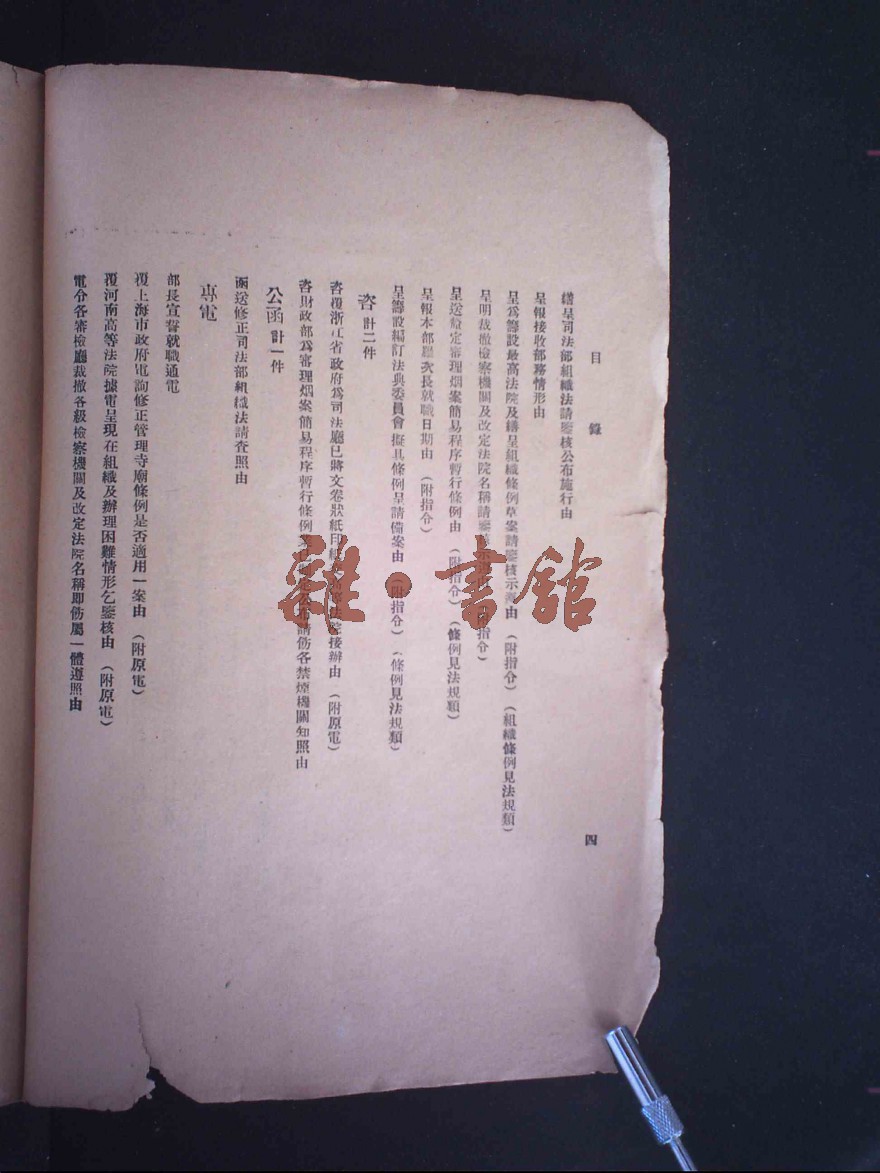 目錄
四
繕呈司法部組織法請鑒核公布施行由
呈報接收部務情形由
呈爲籌設最高法院及繕呈組織條例草案請鑒核示遵由（附指令）（組織條例見法規類）
呈明裁撤檢察機關及改定法院名稱請鑒 示遵由（附指令）
呈送擬定審理烟案簡易程序暫行條例由（附指令）（條例見法規類）
呈報本部屬次長就職日期由（附指令）
呈籌設編訂法典委員會擬具條例呈請備案由（附指令）（條例見法規類）
咨 計二件
咨覆浙江省政府爲司法廳已將文卷狀紙印 法院接辦由（附原電）
咨財政部爲審理烟案簡易程序暫行條例 公布請飭各禁煙機關知照由
公函 計一件
函送修正司法部組織法請查照由
專電
部長宣誓就職通電
覆上海市政府電詢修正管理寺廟條例是否適用一案由（附原電）
覆河南高等法院據電呈現在組織及辦理困難情形乞鑒核由（附原電）
電令各審檢廳裁撤各級檢察機關及改定法院名稱即飭屬一體遵照由
雜·書館